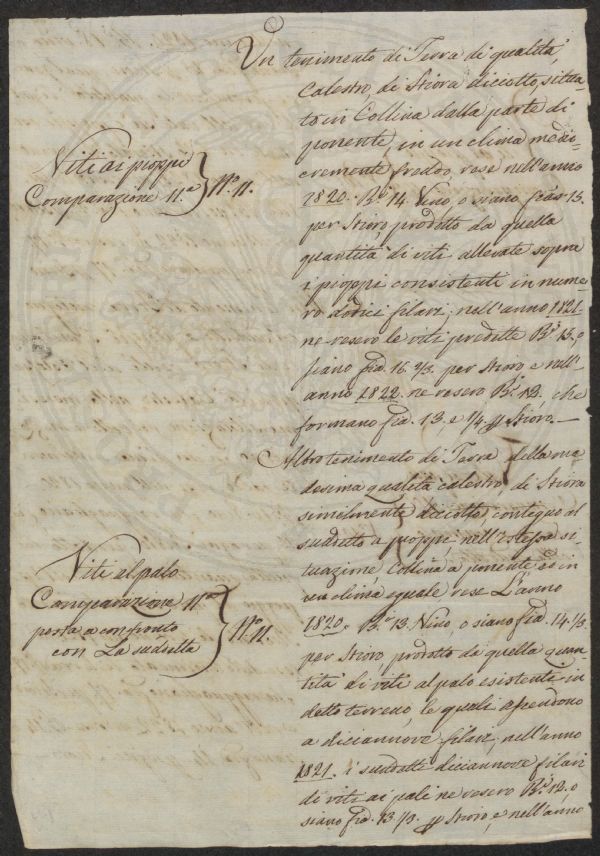 Un tenimento di Terra di qualità
calestro, di Stiora diccotto, situa-
to in Collina dalla parte di
ponente, in un clima medio-
cremente freddo, rese nell'anno
1820. B.e 14. Vino, o siano 13.
per Stioro prodotto da quella
quantità di viti, allevate sopra
i pioppi consistenti in nume-
ro dodici filari; nell'anno 1821.
ne resero le viti predette B.e 15. o
siano fia. 16. 2/3. per Stioro e nell'
anno 1822. ne resero B.e che
formano fia. 13. e 1/4. p Stioro.—
Viti ai pioppi
Comparazione 11.a } N.o 11.
Altro tenimento di Terra della me
desima qualità calestro, di Stiora
similmente diccotto contiguo al
suddetto a pioppi, nell'istessa si-
tuazione Collina a ponente ed in
un clima eguale rese L'anno
1820. B.e 13. Vino, o siano fia. 14. 1/3.
per Stioro, prodotto da quella quan
tità di viti al palo esistente in
detto terreno, le quali ascendono
a diciannove filari; nell'anno
1821. i suddetti diciannove filari
di viti ai pali ne resero B.e 12, o
siano fia. 13. 1/3. p Stioro, e nell'anno
Viti al palo
Comparazione 11.a
posta a confronto
con La suddetta } N.o 11.